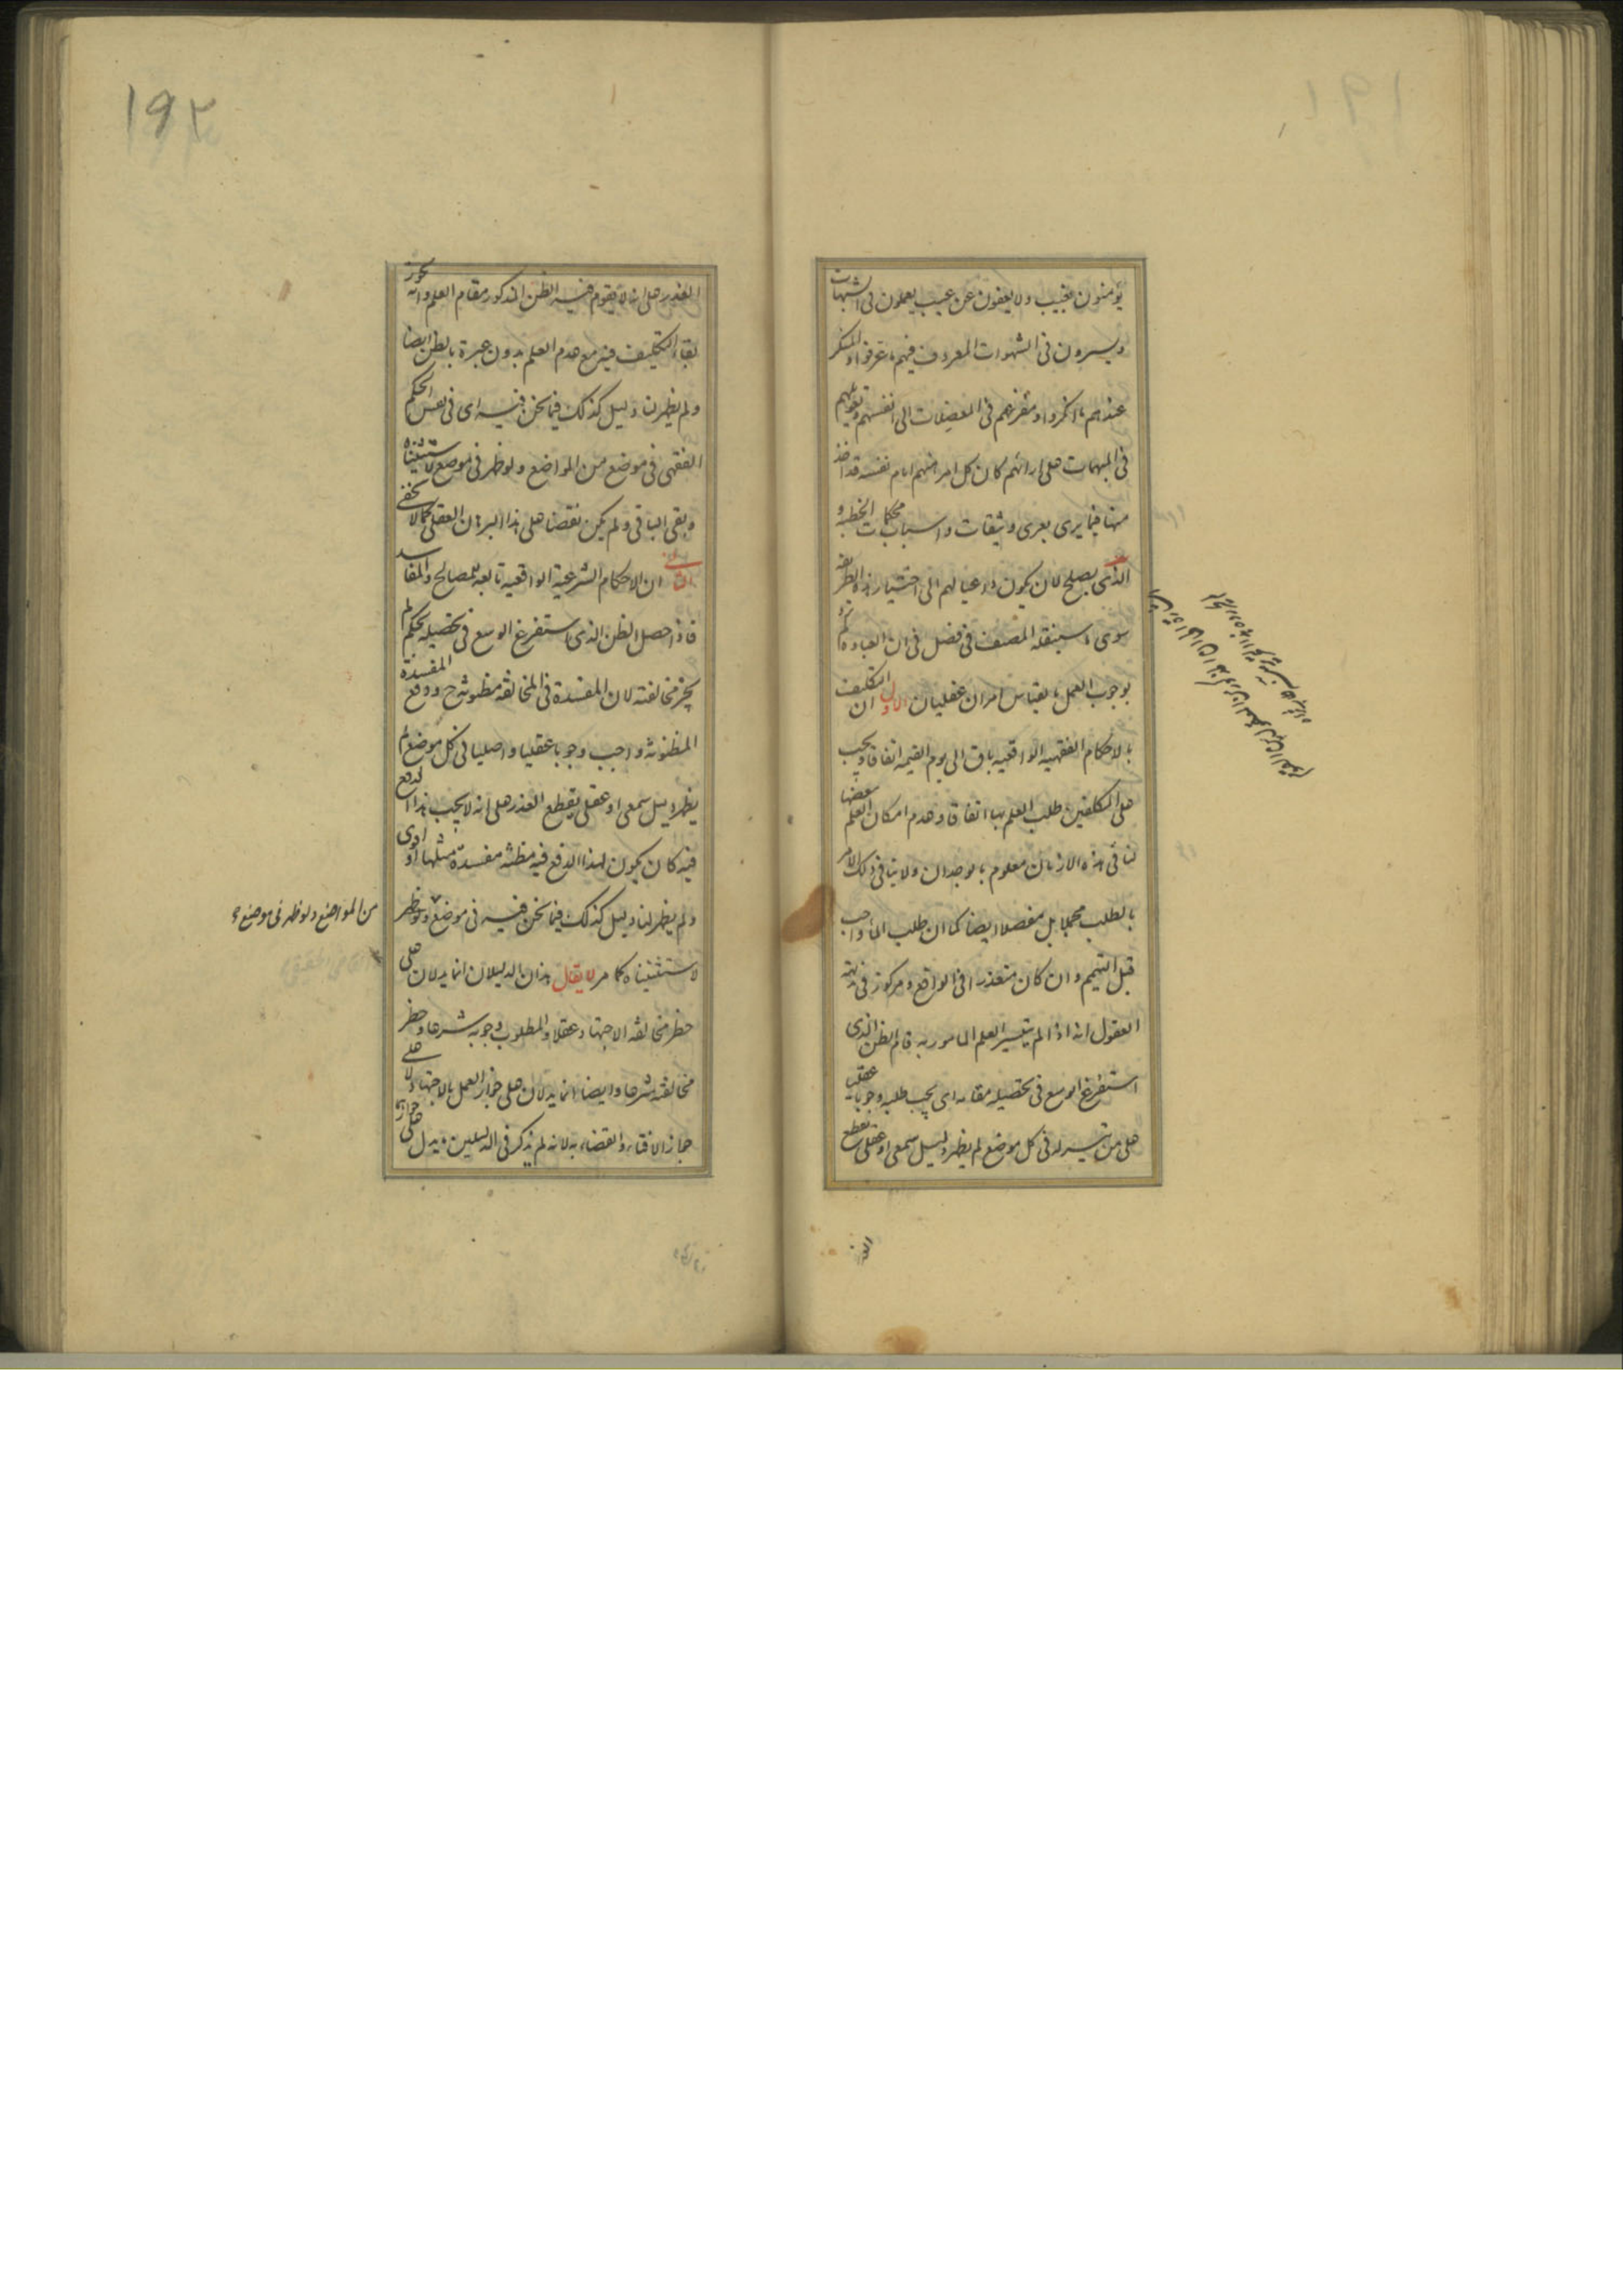 يؤمنون بغيب ولا يعفون عن عيب يعملون فى الشبهات
ويسيرون فى الشهوات المعروف فيهم ما عرفوا والمنكر
عندهم ما انكروا ومفزعهم فى المعضلات الى انفسهم وتعويلهم
فى المبهمات على ارائهم كان كل امرء منهم امام نفسه قد اخذ
منها فيما يرى بعرى وثيقات واسباب محكمات الخطبة و
الذى يصلح لان يكون داعيا لهم الى اختيار هذه الطريقة
سوى ما سينقله المصنف فى فصل فى ان العبادة
بوجوب العمل بالقياس امران عقليان الاول ان التكليف
بالاحكام الفقهية الواقعية باق الى يوم القيمة اتفاقا ويجب
على المكلفين طلب العلم بها اتفاقا وعدم امكان العلم ببعضها
لنا فى هذه الازمان معلوم بالوجدان ولا ينافى ذلك الامر
بالطلب مجملا بل مفصلا ايضا كما ان طلب الماء واجب
قبل التيمم وان كان متعذرا فى الواقع ومركوز فى بديهة
العقول انه اذا لم يتيسر العلم المامور به قام الظن الذى
استفرغ الوسع فى تحصيله مقامه اى يجب طلبه وجوبا عقليا
على من تيسر له فى كل موضع لم يظهر دليل سمعى او عقلى يقطع
العذر
١٩٢
العذر على انه لا يقوم فيه الظن المذكور مقام العلم وانه يجوز
بقاء التكليف فيه مع عدم العلم بدون عبرة بالظن ايضا
ولم يظهر لنا دليل كذلك فيما نحن فيه اى فى نفس الحكم
الفقهى فى موضع من المواضع ولو ظهر فى موضع لاستثنيناه
وبقى الباقى ولم يكن نقضا على هذا البرهان العقلى كما لا يخفى
الثانى ان الاحكام الشرعية الواقعية تابعة للمصالح والمفاسد
فاذا حصل الظن الذى استفرغ الوسع فى تحصيله بحكم لم
يجز مخالفته لان المفسدة فى المخالفة مظنونة ح ودفع المفسدة
المظنونة واجب وجوبا عقليا واصليا فى كل موضع لم
يظهر دليل سمعى او عقلى يقطع العذر على انه لا يجب هذا الدفع
فيه كان يكون لهذا الدفع فيه مظنة مفسدة مثلها او اقوى
ولم يظهر لنا دليل كذلك فيما نحن فيه فى موضع ولو ظهر
من المواضع ولو ظهر فى موضع
لاستثنيناه كما مر لا يقال هذان الدليلان انما يدلان على
حظر مخالفة الاجتهاد عقلا والمطلوب وجوبه شرعا وحظر
مخالفته شرعا وايضا انما يدلان على جواز العمل بالاجتهاد لا على
جواز الافتاء والقضاء به لانه لم يذكر فى الدليلين ما يدل على جوازهما